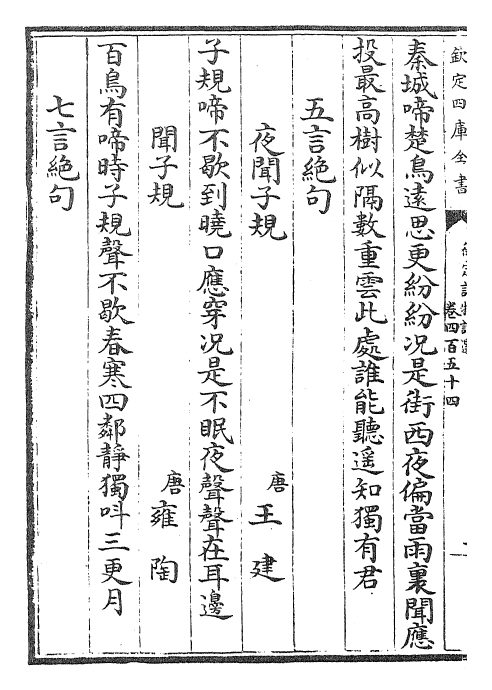 欽定四庫全書
卷四百五十四
秦城啼楚鳥遠思更紛紛况是街西夜偏當雨裏聞應
投最高樹似隔數重雲此處誰能聽遥知獨有君
五言絶句
夜聞子規
唐 王建
子規啼不歇到曉口應穿况是不眠夜聲聲在耳邊
聞子規
唐 雍陶
百鳥有啼時子規聲不歇春寒四鄰靜獨呌三更月
七言絶句